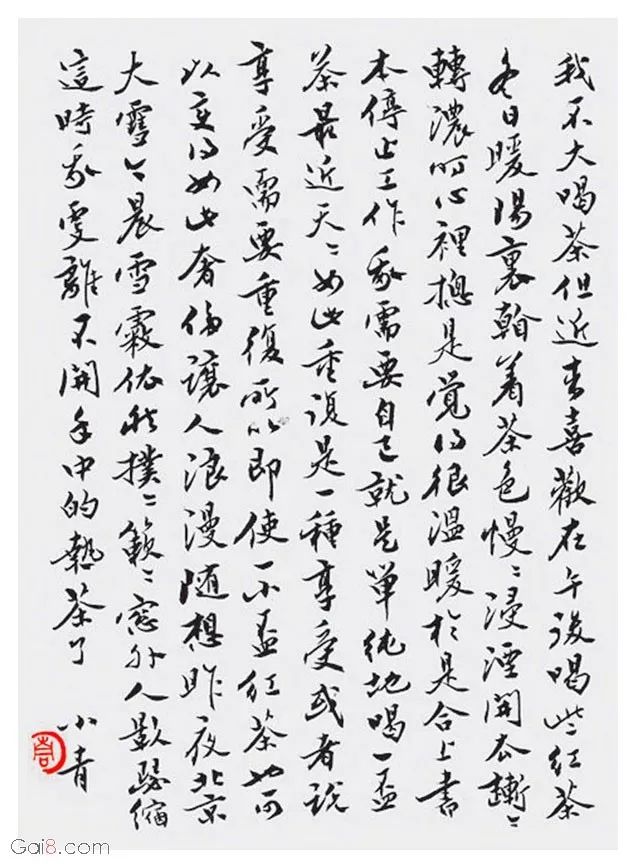 我不大喝茶但近来喜歡在午後喝些紅茶
冬日暖陽裏翰着茶色慢〻浸湮開衣漸〻
轉濃時心裡摠是覺得很溫暖於是合上書
本停止工作我需要自己就是單純地喝一盃
茶最近天〻如此重複是一種享受或者說
享受需要重復所以即使一小盃紅茶也可
以变得如此奢侈讓人浪漫随想昨夜北京
大雪今晨雪霰依然撲〻簌〻窓外人影瑟縮
這時我更離不開手中的熱茶了
小青
Gai8.com